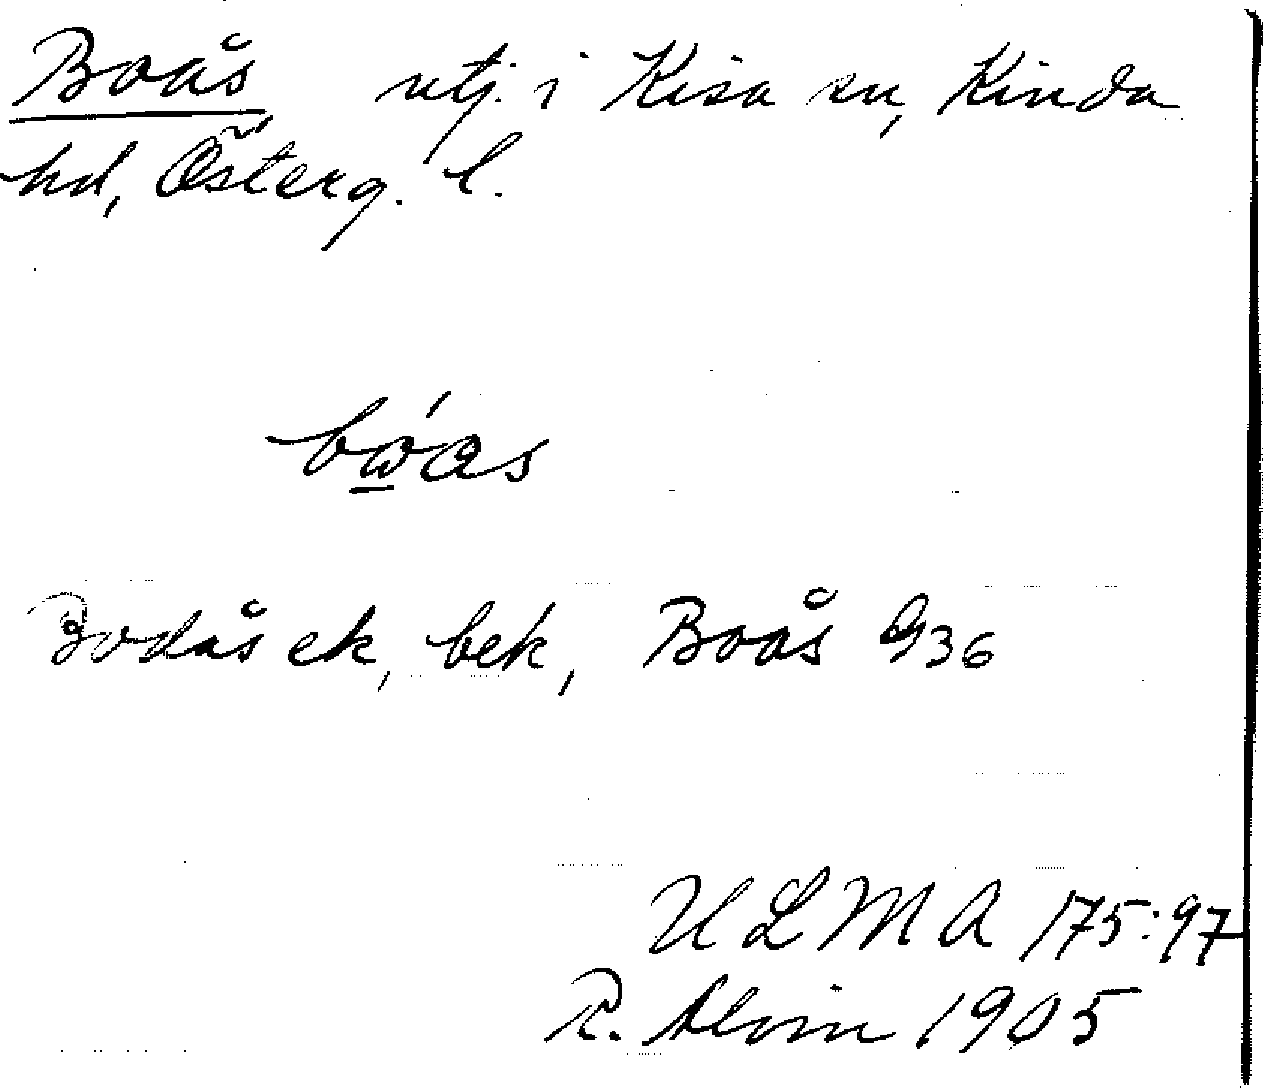 Boås utj. i Kisa sn, Kinda
hd, Österg. l.
bѡ́as
Bodås ek, bek, Boås G36
ULMA 175:97
R. Alvin 1905